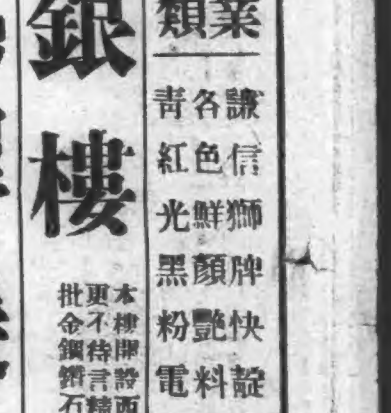 業類
謙信獅牌快靛
各色鮮顏艷料
青紅光黑粉電
銀樓
本樓開設西
更不待言精
批金鋼鑽石